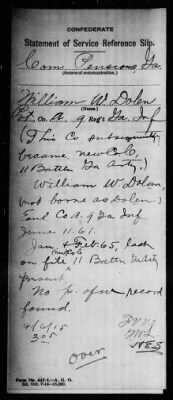 CONFEDERATE
Statement of Service Reference Slip.
Com Pensions, Ga.
(Source of communication.)
William W. Dolen
(Name)
Co. A, 9 Reg't Ga Inf
(This Co subsequently
became new Co C,
11 Battn Ga Arty.)
William W. Dolan,
(not borne as Dolen)
Enl Co A. 9 Ga Inf
June 11. 61.
Jan & Feb 65, last
on file 11 Battn
present
No p. of w record
found.
4/6/15
305
over
Form No. 447-1—A. G. O.
Ed. Oct. 7-14—15,000.